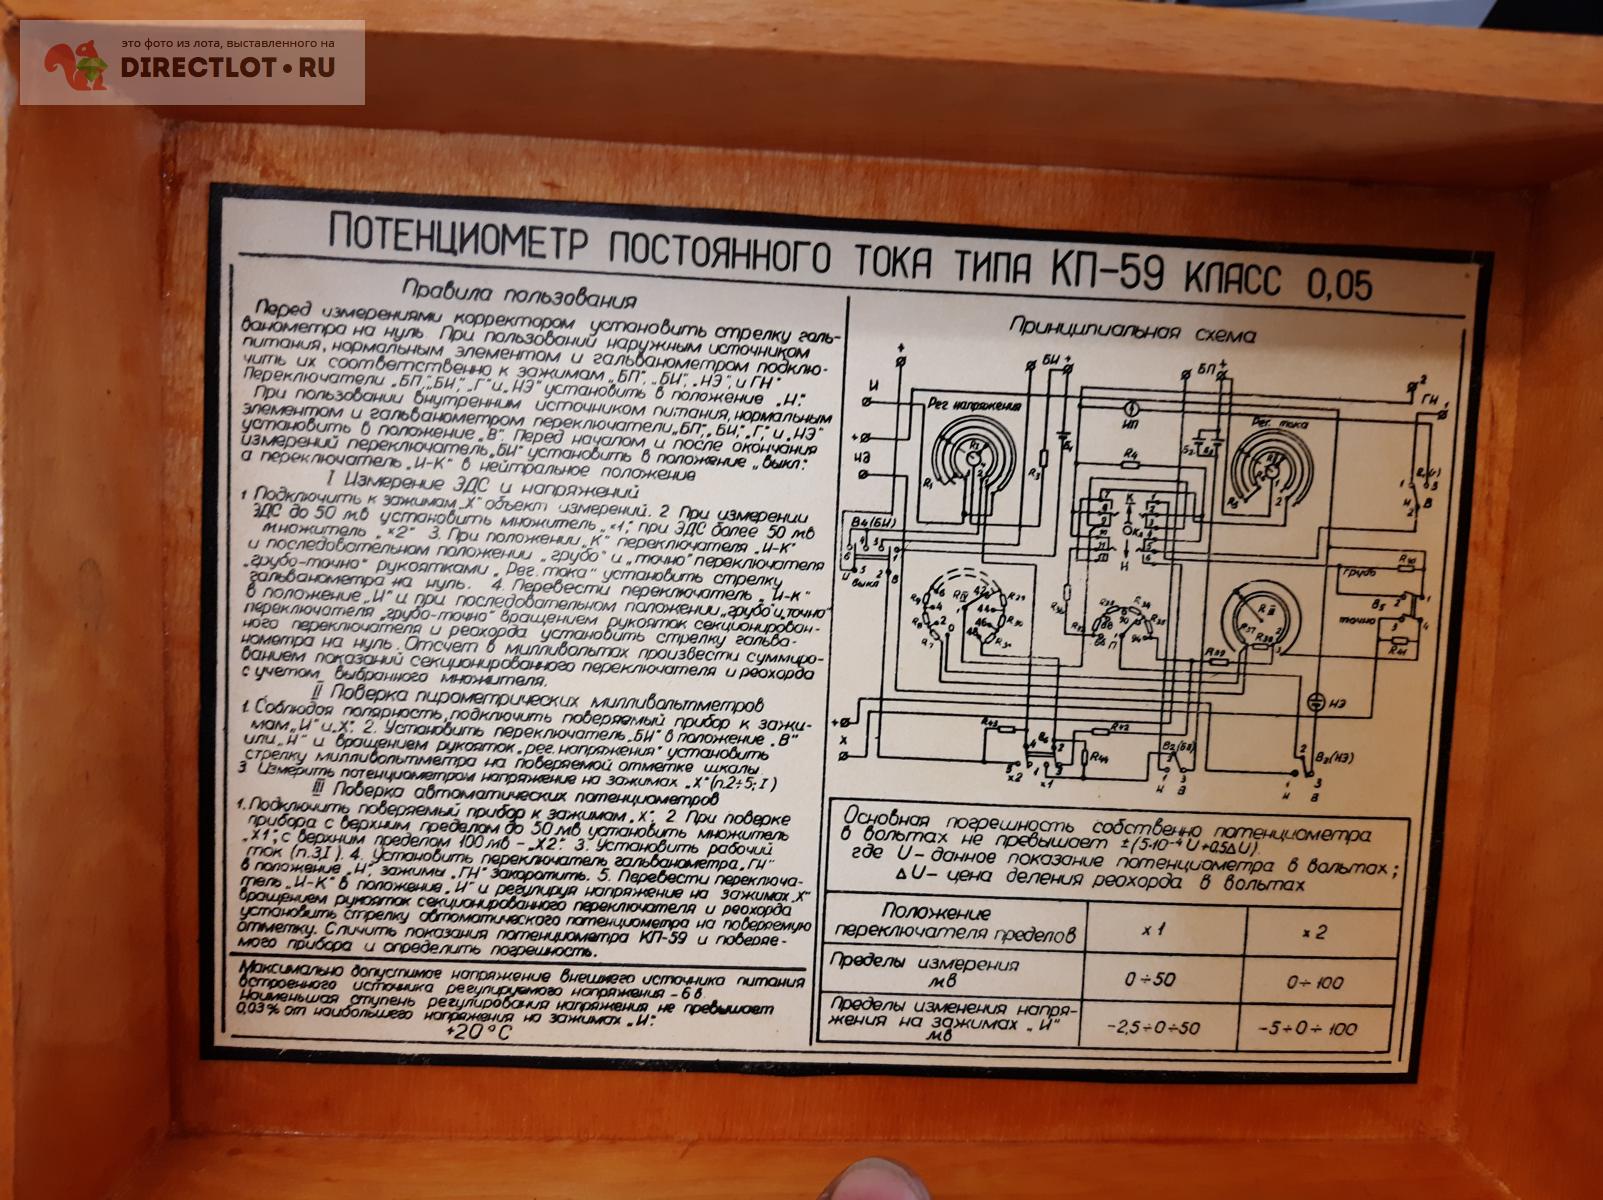 это фото из лота, выставленного на
DIRECTLOT•RU
ПОТЕНЦИОМЕТР ПОСТОЯННОГО ТОКА ТИПА КП-59 КЛАСС 0,05
Правила пользования
Перед измерениями корректором установить стрелку галь-
ванометра на нуль. При пользовании наружным источником
питания, нормальным элементом и гальванометром подклю-
чить их соответственно к зажимам „БП“, „БИ“, „НЭ“, и ГН“
Переключатели „БП“, „БИ“, „Г“ и „НЭ“ установить в положение „Н“.
При пользовании внутренним источником питания, нормальным
элементом и гальванометром переключатели „БП“, БИ“, „Г“ и „НЭ“
установить в положение „В“. Перед началом и после окончания
измерений переключатель „БИ“ установить в положение „выкл“.
а переключатель „И-К“ в нейтральное положение
I Измерение ЭДС и напряжений
1 Подключить к зажимам „X“ объект измерений. 2 При измерении
ЭДС до 50 мв установить множитель „×1“, при ЭДС более 50 мв
множитель „×2“ 3. При положении „К“ переключателя „И-К“
и последовательном положении „грубо“ и „точно“ переключателя
„грубо-точно“ рукоятками „Рег. тока“ установить стрелку
гальванометра на нуль. 4. Перевести переключатель „И-К“
в положение „И“ и при последовательном положении „грубо“ и „точно“
переключателя „грубо-точно“ вращением рукояток секционирован-
ного переключателя и реохорда установить стрелку гальва-
нометра на нуль. Отсчет в милливольтах произвести суммиро-
ванием показаний секционированного переключателя и реохорда
с учетом выбранного множителя.
II Поверка пирометрических милливольтметров
1. Соблюдая полярность, подключить поверяемый прибор к зажи-
мам „И“ и „X“. 2. Установить переключатель „БИ“ в положение „В“
или „Н“ и вращением рукояток „рег. напряжения“ установить
стрелку милливольтметра на поверяемой отметке шкалы.
3 Измерить потенциометром напряжение на зажимах „X“ (п.2÷5; I)
III Поверка автоматических потенциометров
1. Подключить поверяемый прибор к зажимам „X“. 2 При поверке
прибора с верхним пределом до 50 мв установить множитель
„X1“, с верхним пределом 100 мв – „X2“ 3. Установить рабочий
ток (п.3,I). 4. Установить переключатель гальванометра „ГН“
в положение „Н“, зажимы „ГН“ закоротить. 5. Перевести переключа-
тель „И-К“ в положение „И“ и регулируя напряжение на зажимах „X“
вращением рукояток секционированного переключателя и реохорда
установить стрелку автоматического потенциометра на поверяемую
отметку. Сличить показания потенциометра КП-59 и поверяе-
мого прибора и определить погрешность.
Максимально допустимое напряжение внешнего источника питания
встроенного источника регулируемого напряжения – 6 в
Наименьшая ступень регулирования напряжения не превышает
0,03% от наибольшего напряжения на зажимах „И“.
+20°С
Принципиальная схема
И
+
БИ +
БП +
2
ГН
1
Рег напряжения
ИП
Рег. тока
+
НЭ
R1
R3
R4
R5
В4(БИ)
К
И
В
выкл
грубо
В5
точно
R39
НЭ
+
X
R43
R42
R44
В6
×2
×1
В2(БП)
В3(НЭ)
Н
В
Основная погрешность собственно потенциометра
в вольтах не превышает ±(5·10⁻⁴U+0,5ΔU).
где U– данное показание потенциометра в вольтах;
ΔU– цена деления реохорда в вольтах
Положение
переключателя пределов
×1
×2
Пределы измерения
мв
0÷50
0÷100
Пределы изменения напря-
жения на зажимах „И“
мв
-2,5÷0÷50
-5÷0÷100